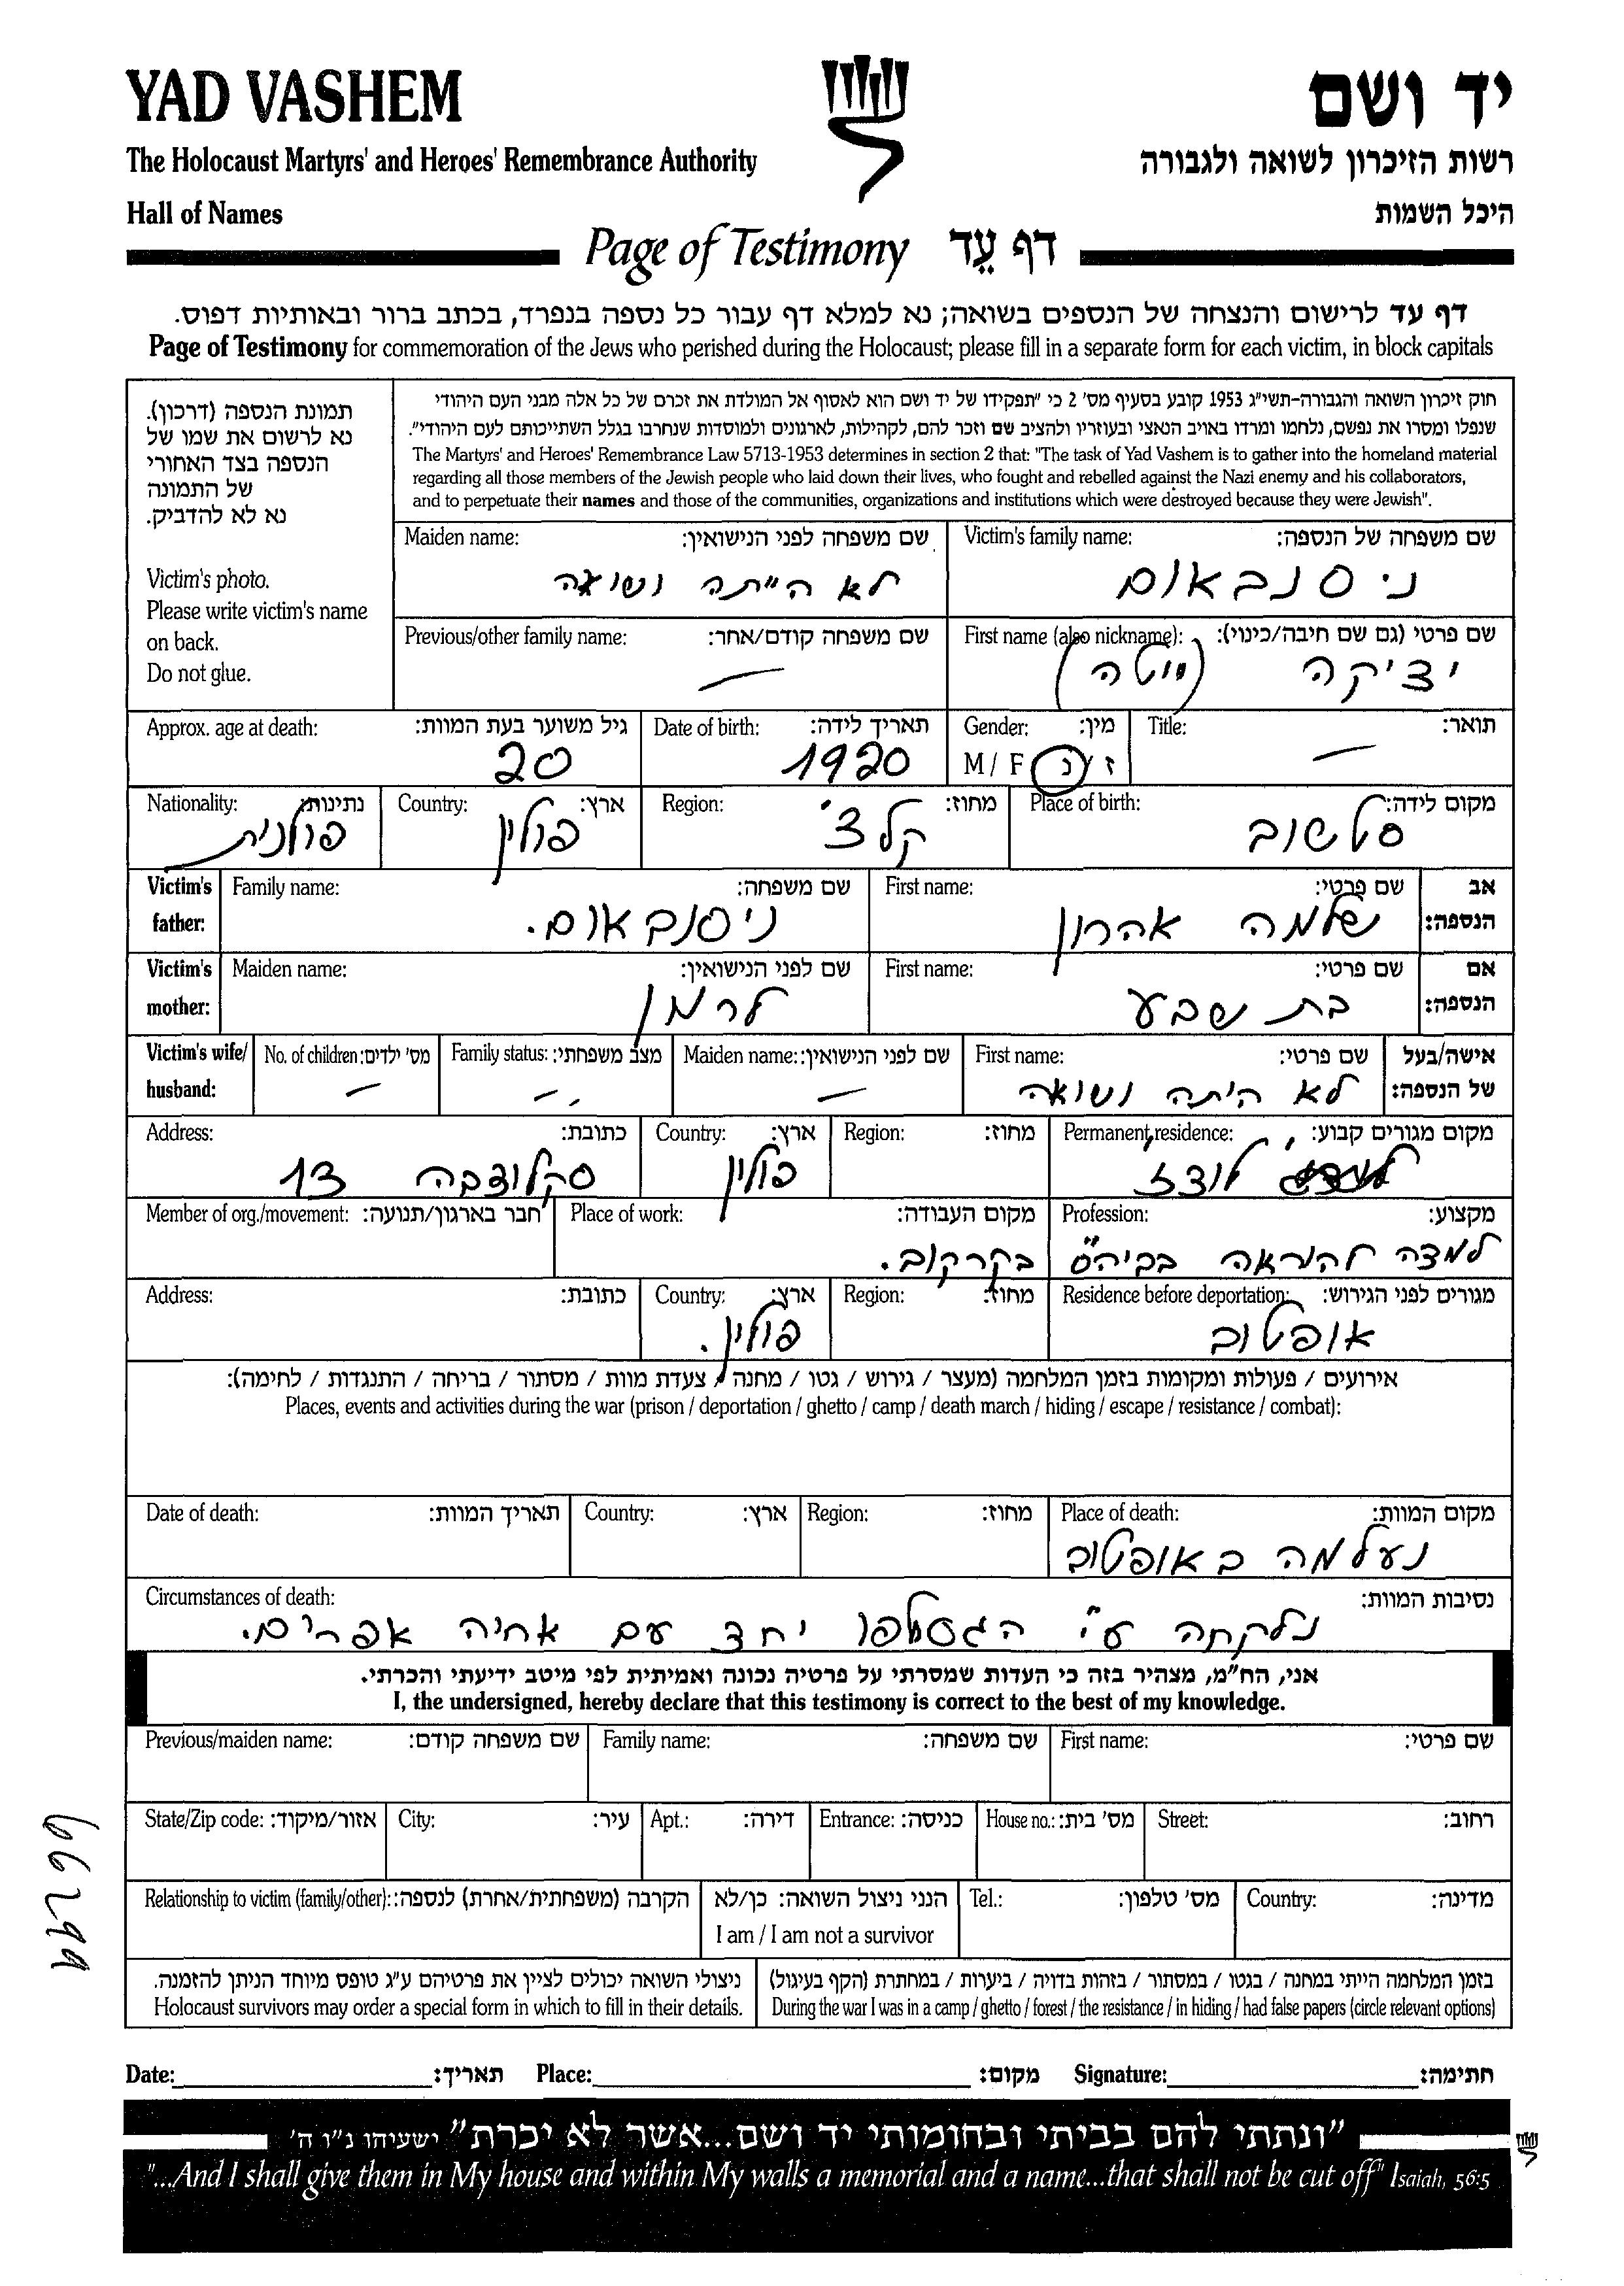 YAD VASHEM
יד ושם
The Holocaust Martyrs' and Heroes' Remembrance Authority
רשות הזיכרון לשואה ולגבורה
Hall of Names
היכל השמות
Page of Testimony דף עֵד
דף עד לרישום והנצחה של הנספים בשואה; נא למלא דף עבור כל נספה בנפרד, בכתב ברור ובאותיות דפוס.
Page of Testimony for commemoration of the Jews who perished during the Holocaust; please fill in a separate form for each victim, in block capitals
תמונת הנספה (דרכון).
נא לרשום את שמו של
הנספה בצד האחורי
של התמונה
נא לא להדביק.
Victim's photo.
Please write victim's name
on back.
Do not glue.
חוק זיכרון השואה והגבורה-תשי"ג 1953 קובע בסעיף מס' 2 כי "תפקידו של יד ושם הוא לאסוף אל המולדת את זכרם של כל אלה מבני העם היהודי
שנפלו ומסרו את נפשם, נלחמו ומרדו באויב הנאצי ובעוזריו ולהציב שם וזכר להם, לקהילות, לארגונים ולמוסדות שנחרבו בגלל השתייכותם לעם היהודי".
The Martyrs' and Heroes' Remembrance Law 5713-1953 determines in section 2 that: "The task of Yad Vashem is to gather into the homeland material
regarding all those members of the Jewish people who laid down their lives, who fought and rebelled against the Nazi enemy and his collaborators,
and to perpetuate their names and those of the communities, organizations and institutions which were destroyed because they were Jewish".
Victim's family name: שם משפחה של הנספה:
ניסנבאום
Maiden name: שם משפחה לפני הנישואין:
לא הייתה נשואה
First name (also nickname): שם פרטי (גם שם חיבה/כינוי):
יציקה (ויטה)
Previous/other family name: שם משפחה קודם/אחר:
—
Title: תואר:
—
Gender: מין:
M / F ז / נ
Date of birth: תאריך לידה:
1920
Approx. age at death: גיל משוער בעת המוות:
20
Place of birth: מקום לידה:
סטשוב
Region: מחוז:
קלצ'
Country: ארץ:
פולין
Nationality: נתינות:
פולנית
Victim's father: אב הנספה:
First name: שם פרטי:
שלמה אהרון
Family name: שם משפחה:
ניסנבאום.
Victim's mother: אם הנספה:
First name: שם פרטי:
בת שבע
Maiden name: שם לפני הנישואין:
לרמן
Victim's wife/ husband: אישה/בעל של הנספה:
First name: שם פרטי:
לא היתה נשואה
Maiden name: שם לפני הנישואין:
—
Family status: מצב משפחתי:
—
No. of children: מס' ילדים:
—
Permanent residence: מקום מגורים קבוע:
לודז'
Region: מחוז:
Country: ארץ:
פולין
Address: כתובת:
סקלודבה 13
Profession: מקצוע:
למדה להוראה בביה"ס
Place of work: מקום העבודה:
בקרקוב.
Member of org./movement: חבר בארגון/תנועה:
Residence before deportation: מגורים לפני הגירוש:
אופטוב
Region: מחוז:
Country: ארץ:
פולין.
Address: כתובת:
אירועים / פעולות ומקומות בזמן המלחמה (מעצר / גירוש / גטו / מחנה / צעדת מוות / מסתור / בריחה / התנגדות / לחימה):
Places, events and activities during the war (prison / deportation / ghetto / camp / death march / hiding / escape / resistance / combat):
Place of death: מקום המוות:
נעלמה באופטוב
Region: מחוז:
Country: ארץ:
Date of death: תאריך המוות:
Circumstances of death: נסיבות המוות:
נלקחה ע"י הגסטפו יחד עם אחיה אפרים.
אני, הח"מ, מצהיר בזה כי העדות שמסרתי על פרטיה נכונה ואמיתית לפי מיטב ידיעתי והכרתי.
I, the undersigned, hereby declare that this testimony is correct to the best of my knowledge.
First name: שם פרטי:
Family name: שם משפחה:
Previous/maiden name: שם משפחה קודם:
Street: רחוב:
House no.: מס' בית:
Entrance: כניסה:
Apt.: דירה:
City: עיר:
State/Zip code: אזור/מיקוד:
Country: מדינה:
Tel.: מס' טלפון:
הנני ניצול השואה: כן/לא
I am / I am not a survivor
Relationship to victim (family/other): הקרבה (משפחתית/אחרת) לנספה:
בזמן המלחמה הייתי במחנה / בגטו / במסתור / בזהות בדויה / ביערות / במחתרת (הקף בעיגול)
During the war I was in a camp / ghetto / forest / the resistance / in hiding / had false papers (circle relevant options)
ניצולי השואה יכולים לציין את פרטיהם ע"ג טופס מיוחד הניתן להזמנה.
Holocaust survivors may order a special form in which to fill in their details.
Date: תאריך: Place: מקום: Signature: חתימה:
"ונתתי להם בביתי ובחומותי יד ושם...אשר לא יכרת" ישעיהו נ"ו ה'
"...And I shall give them in My house and within My walls a memorial and a name...that shall not be cut off" Isaiah, 56:5
66299